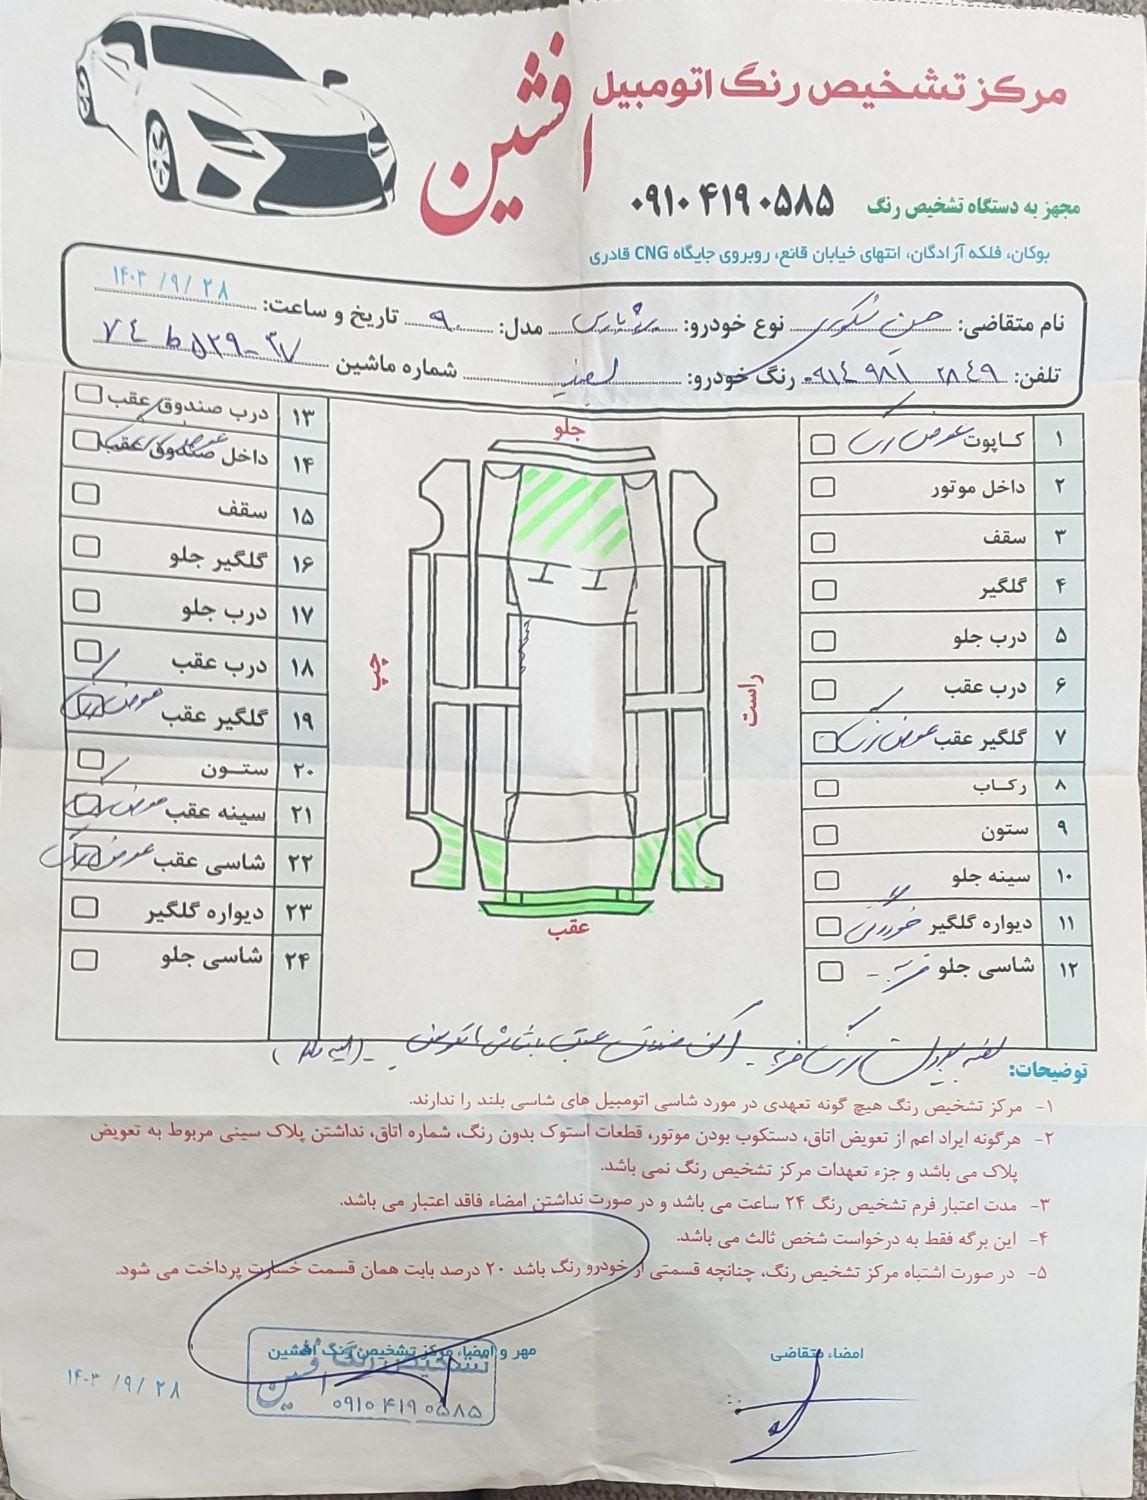 مرکز تشخیص رنگ اتومبیل
افشین
مجهز به دستگاه تشخیص رنگ ۰۹۱۰ ۴۱۹ ۰۵۸۵
بوکان، فلکه آزادگان، انتهای خیابان قانع، روبروی جایگاه CNG قادری
نام متقاضی: حسن شکوری نوع خودرو: پژو پارس مدل: ۹۰ تاریخ و ساعت: ۱۴۰۳/۹/۲۸
تلفن: ۰۹۱۴ ۹۸۱ ۲۸۴۹ رنگ خودرو: سفید شماره ماشین ۷۴ ط ۵۲۹-۳۷
۱ کاپوت عوض رنگ
۲ داخل موتور
۳ سقف
۴ گلگیر
۵ درب جلو
۶ درب عقب
۷ گلگیر عقب عوض رنگ
۸ رکاب
۹ ستون
۱۰ سینه جلو
۱۱ دیواره گلگیر خوردگی
۱۲ شاسی جلو
جلو
چپ
راست
عقب
۱۳ درب صندوق عقب
۱۴ داخل صندوق عقب
۱۵ سقف
۱۶ گلگیر جلو
۱۷ درب جلو
۱۸ درب عقب
۱۹ گلگیر عقب عوض رنگ
۲۰ ستون
۲۱ سینه عقب عوض رنگ
۲۲ شاسی عقب عوض رنگ
۲۳ دیواره گلگیر
۲۴ شاسی جلو
توضیحات:
۱- مرکز تشخیص رنگ هیچ گونه تعهدی در مورد شاسی اتومبیل های شاسی بلند را ندارند.
۲- هرگونه ایراد اعم از تعویض اتاق، دستکوب بودن موتور، قطعات استوک بدون رنگ، شماره اتاق، نداشتن پلاک سینی مربوط به تعویض
پلاک می باشد و جزء تعهدات مرکز تشخیص رنگ نمی باشد.
۳- مدت اعتبار فرم تشخیص رنگ ۲۴ ساعت می باشد و در صورت نداشتن امضاء فاقد اعتبار می باشد.
۴- این برگه فقط به درخواست شخص ثالث می باشد.
۵- در صورت اشتباه مرکز تشخیص رنگ، چنانچه قسمتی از خودرو رنگ باشد ۲۰ درصد بابت همان قسمت خسارت پرداخت می شود.
امضاء متقاضی
مهر و امضاء مرکز تشخیص رنگ افشین
تشخیص رنگ
افشین
۰۹۱۰ ۴۱۹ ۰۵۸۵
۱۴۰۳/۹/۲۸